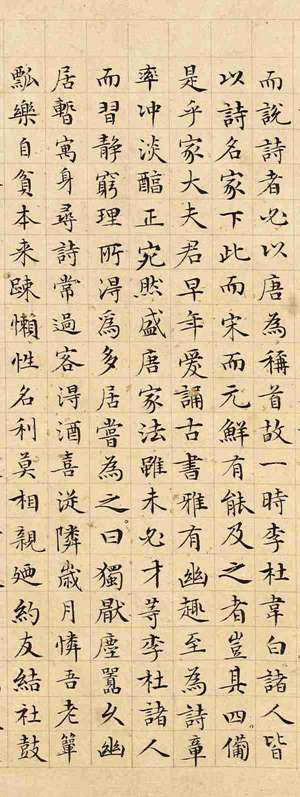 而說詩者必以唐為稱首故一時李杜韋白諸人皆
以詩名家下此而宋而元鮮有能及之者豈其四備
是乎家大夫君早年爱誦古書雅有幽趣至為詩章
率冲淡醇正宛然盛唐家法雖未必才等李杜諸人
而習静窮理所淂爲多居嘗為之曰獨厭塵囂久幽
居暫寓身尋詩常過客淂酒喜従隣歳月憐吾老簞
瓢樂自貧本来踈懶性名利莫相親廼約友結社鼓